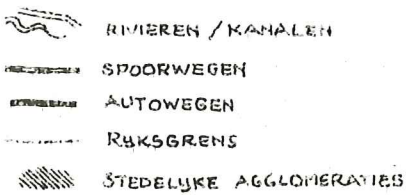 RIVIEREN / KANALEN
SPOORWEGEN
AUTOWEGEN
RYKSGRENS
STEDELYKE AGGLOMERATIES